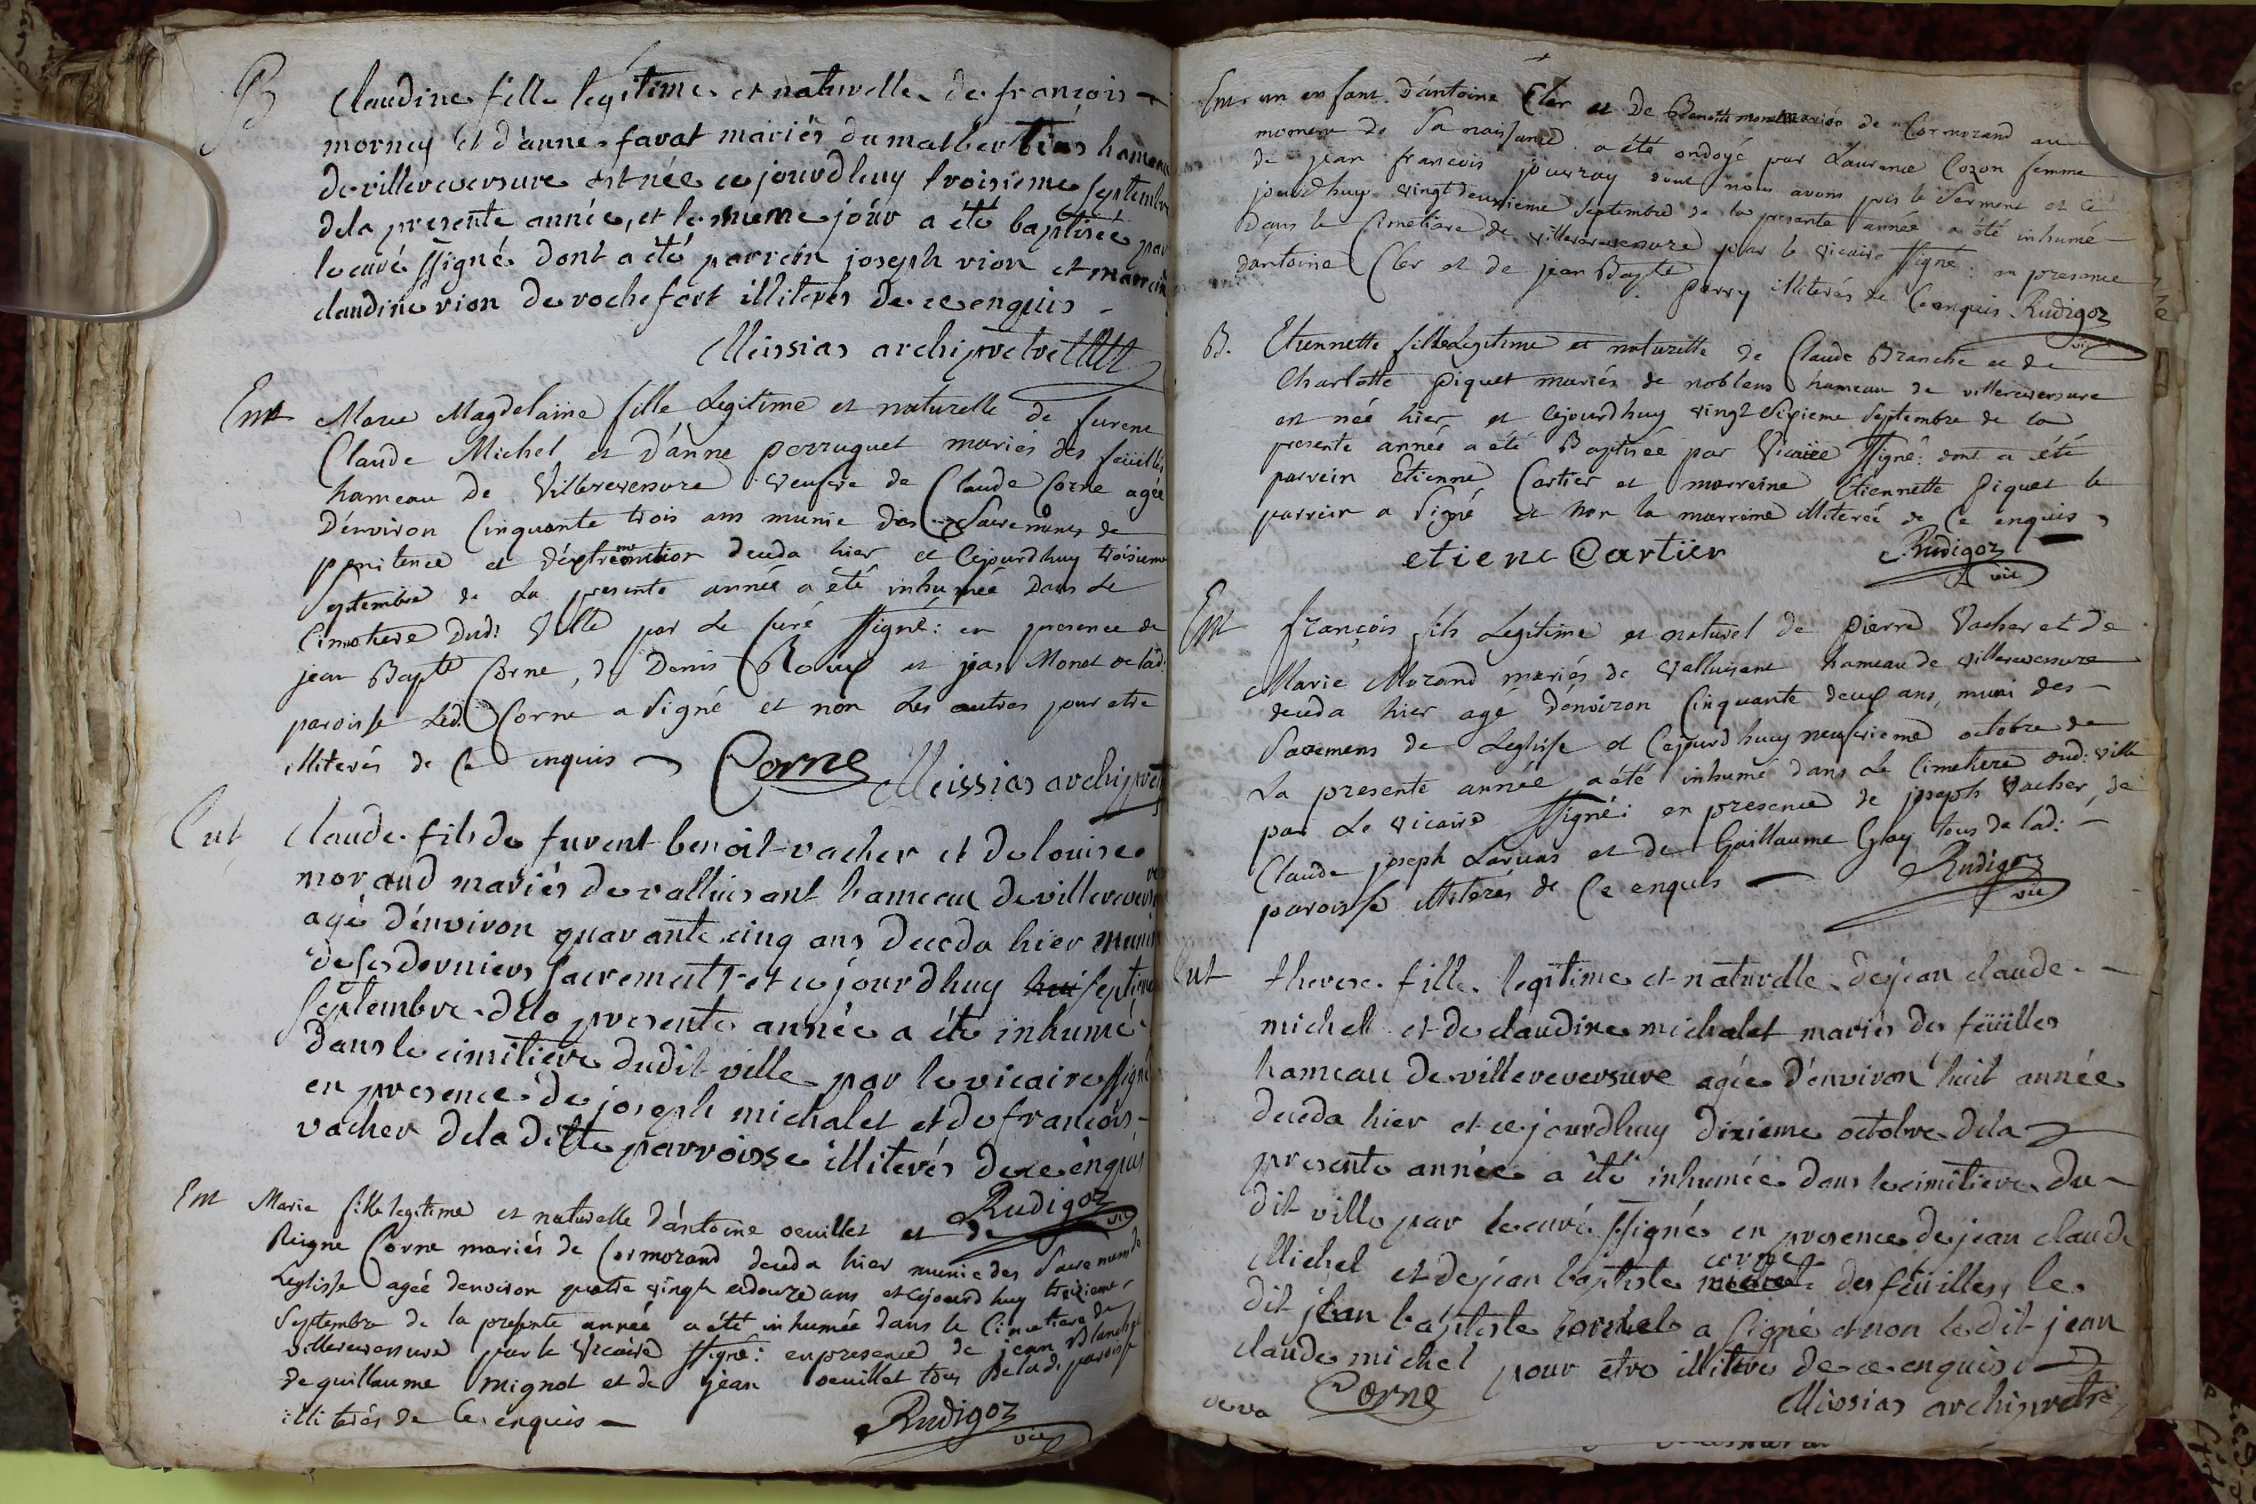 B Claudine fille legitime et naturelle de françois
mornay et d'anne favat mariés du malbertias hameau
de villereversure est née ce jourdhuy troisieme septembre
dela presente année, et le meme jour a été baptisée par
le curé ssigné dont a été parrein joseph vion et marreine
claudine vion de rochefort illiterés de ce enquis
Meissias archipretre
Ent Marie Magdelaine fille Legitime et naturelle de furent
Claude Michel et d'anne perruquet mariés des feüilles
hameau de Villereversure veufve de Claude Corne agée
D'environ Cinquante trois ans munie des Sacremens de
penitence et d'extremontion deceda hier et Cejourdhuy troisieme
Septembre de La presente année a été inhumée Dans Le
Cimetiere Dud: Ville par Le Curé ssigné: en presence de
jean Bapte Corne, de Denis Roux et jean Monet de lad:
paroisse Led. Corne a signé et non Les autres pour etre
illiterés de Ce enquis Corne Meissias archipretre
Ent Claude fils de furent benoit vacher et de louise
morand mariés de valluisant hameau de villereversure
agé d'environ quarante cinq ans deceda hier muni
de ses derniers sacrements et ce jourdhuy septieme
septembre dela presente année a été inhumé
dans le cimitiere dudit ville par le vicaire ssigné
en presence de joseph michalet et de françois
vacher dela ditte parroisse illiterés de ce enquis
Rudigoz vic
Ent Marie fille legitime et naturelle d'antoine oeuillet et de
Reigne Corne mariés de Cormorand deceda hier munie des Sacremens de
Leglisse agée denviron quatre vingt et douze ans et cejourdhuy treizieme
Septembre de la presente année a été inhumée dans le Cimetiere de
villereversure par le Vicaire ssigné: en presence de jean Blanc
de guillaume mignot et de jean oeuillet tous de lad: paroisse
illiterés de Ce enquis
Rudigoz vic
Ent un enfant d'antoine Cler et De Benoitte mariés de Cormorand au
moment de Sa naissance a été ondoyé par Laurence Cozon femme
de jean françois jouvray dont nous avons pris le Serment et ce
jourdhuy vingt deuxieme Septembre de la presente année a été inhumé
dans le Cimetiere de villereversure par le vicaire ssigné: en presence
dantoine Cler et de jean Bapte perry illiterés de Ce enquis Rudigoz
vic
B. Etiennette fille Legitime et naturelle de Claude Branche et de
Charlotte piquet mariés de noblens hameau de villereversure
est née hier et cejourdhuy vingt Sixieme Septembre de la
presente année a été Baptisée par Vicaire ssigné: dont a été
parrein Etienne Cartier et marreine Etiennette piquet le
parrein a signé et non la marreine illiterée de Ce enquis
etiene Cartier Rudigoz
vic
Ent françois fils Legitime et naturel de pierre Vacher et de
Marie Morand mariés de valluisant hameau de villereversure
deceda hier agé d'environ Cinquante deux ans, muni des
Sacremens de Leglisse et Cejourdhuy neufvieme octobre de
La presente année a été inhumé dans Le Cimetiere dud: ville
par Le vicaire ssigné: en presence de joseph Vacher, de
Claude joseph et de Guillaume Gay tous de lad:
paroisse illiterés de Ce enquis Rudigoz
vic
Ent therese fille legitime et naturelle de jean claude
michel et de claudine michalet mariés des feüilles
hameau de villereversure agée d'environ huit année
deceda hier et ce jourdhuy dixieme octobre dela
presente année a été inhumée dans le cimitiere du
dit ville par le curé ssigné en presence de jean claude
Michel et de jean baptiste corne des feüilles, le
dit jean baptiste corne a signé et non le dit jean
claude michel pour etre illiteres de ce enquis
Corne Meissias archipretre